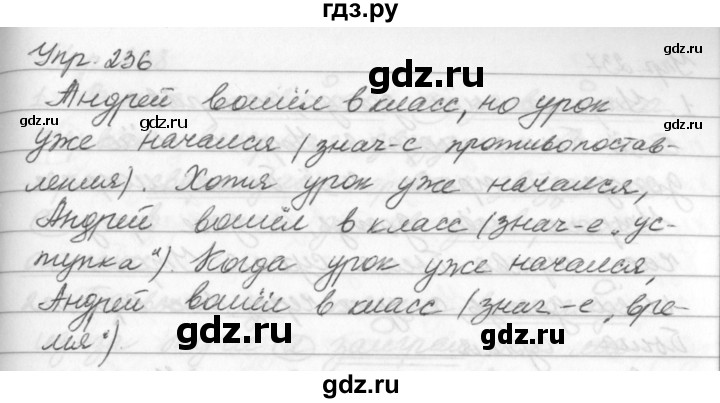 гдз.ру
Упр. 236
gdz.ru
Андрей вошёл в класс, но урок
gdz.ru gdz.ru gdz.ru
уже начался (знач-е противопостав-
ления). Хотя урок уже начался,
gdz.ru
Андрей вошёл в класс (знач-е „ус-
тупка“). Когда урок уже начался,
gdz.ru gdz.ru
Андрей вошёл в класс (знач-е „вре-
мя“).
gdz.ru
gdz.ru